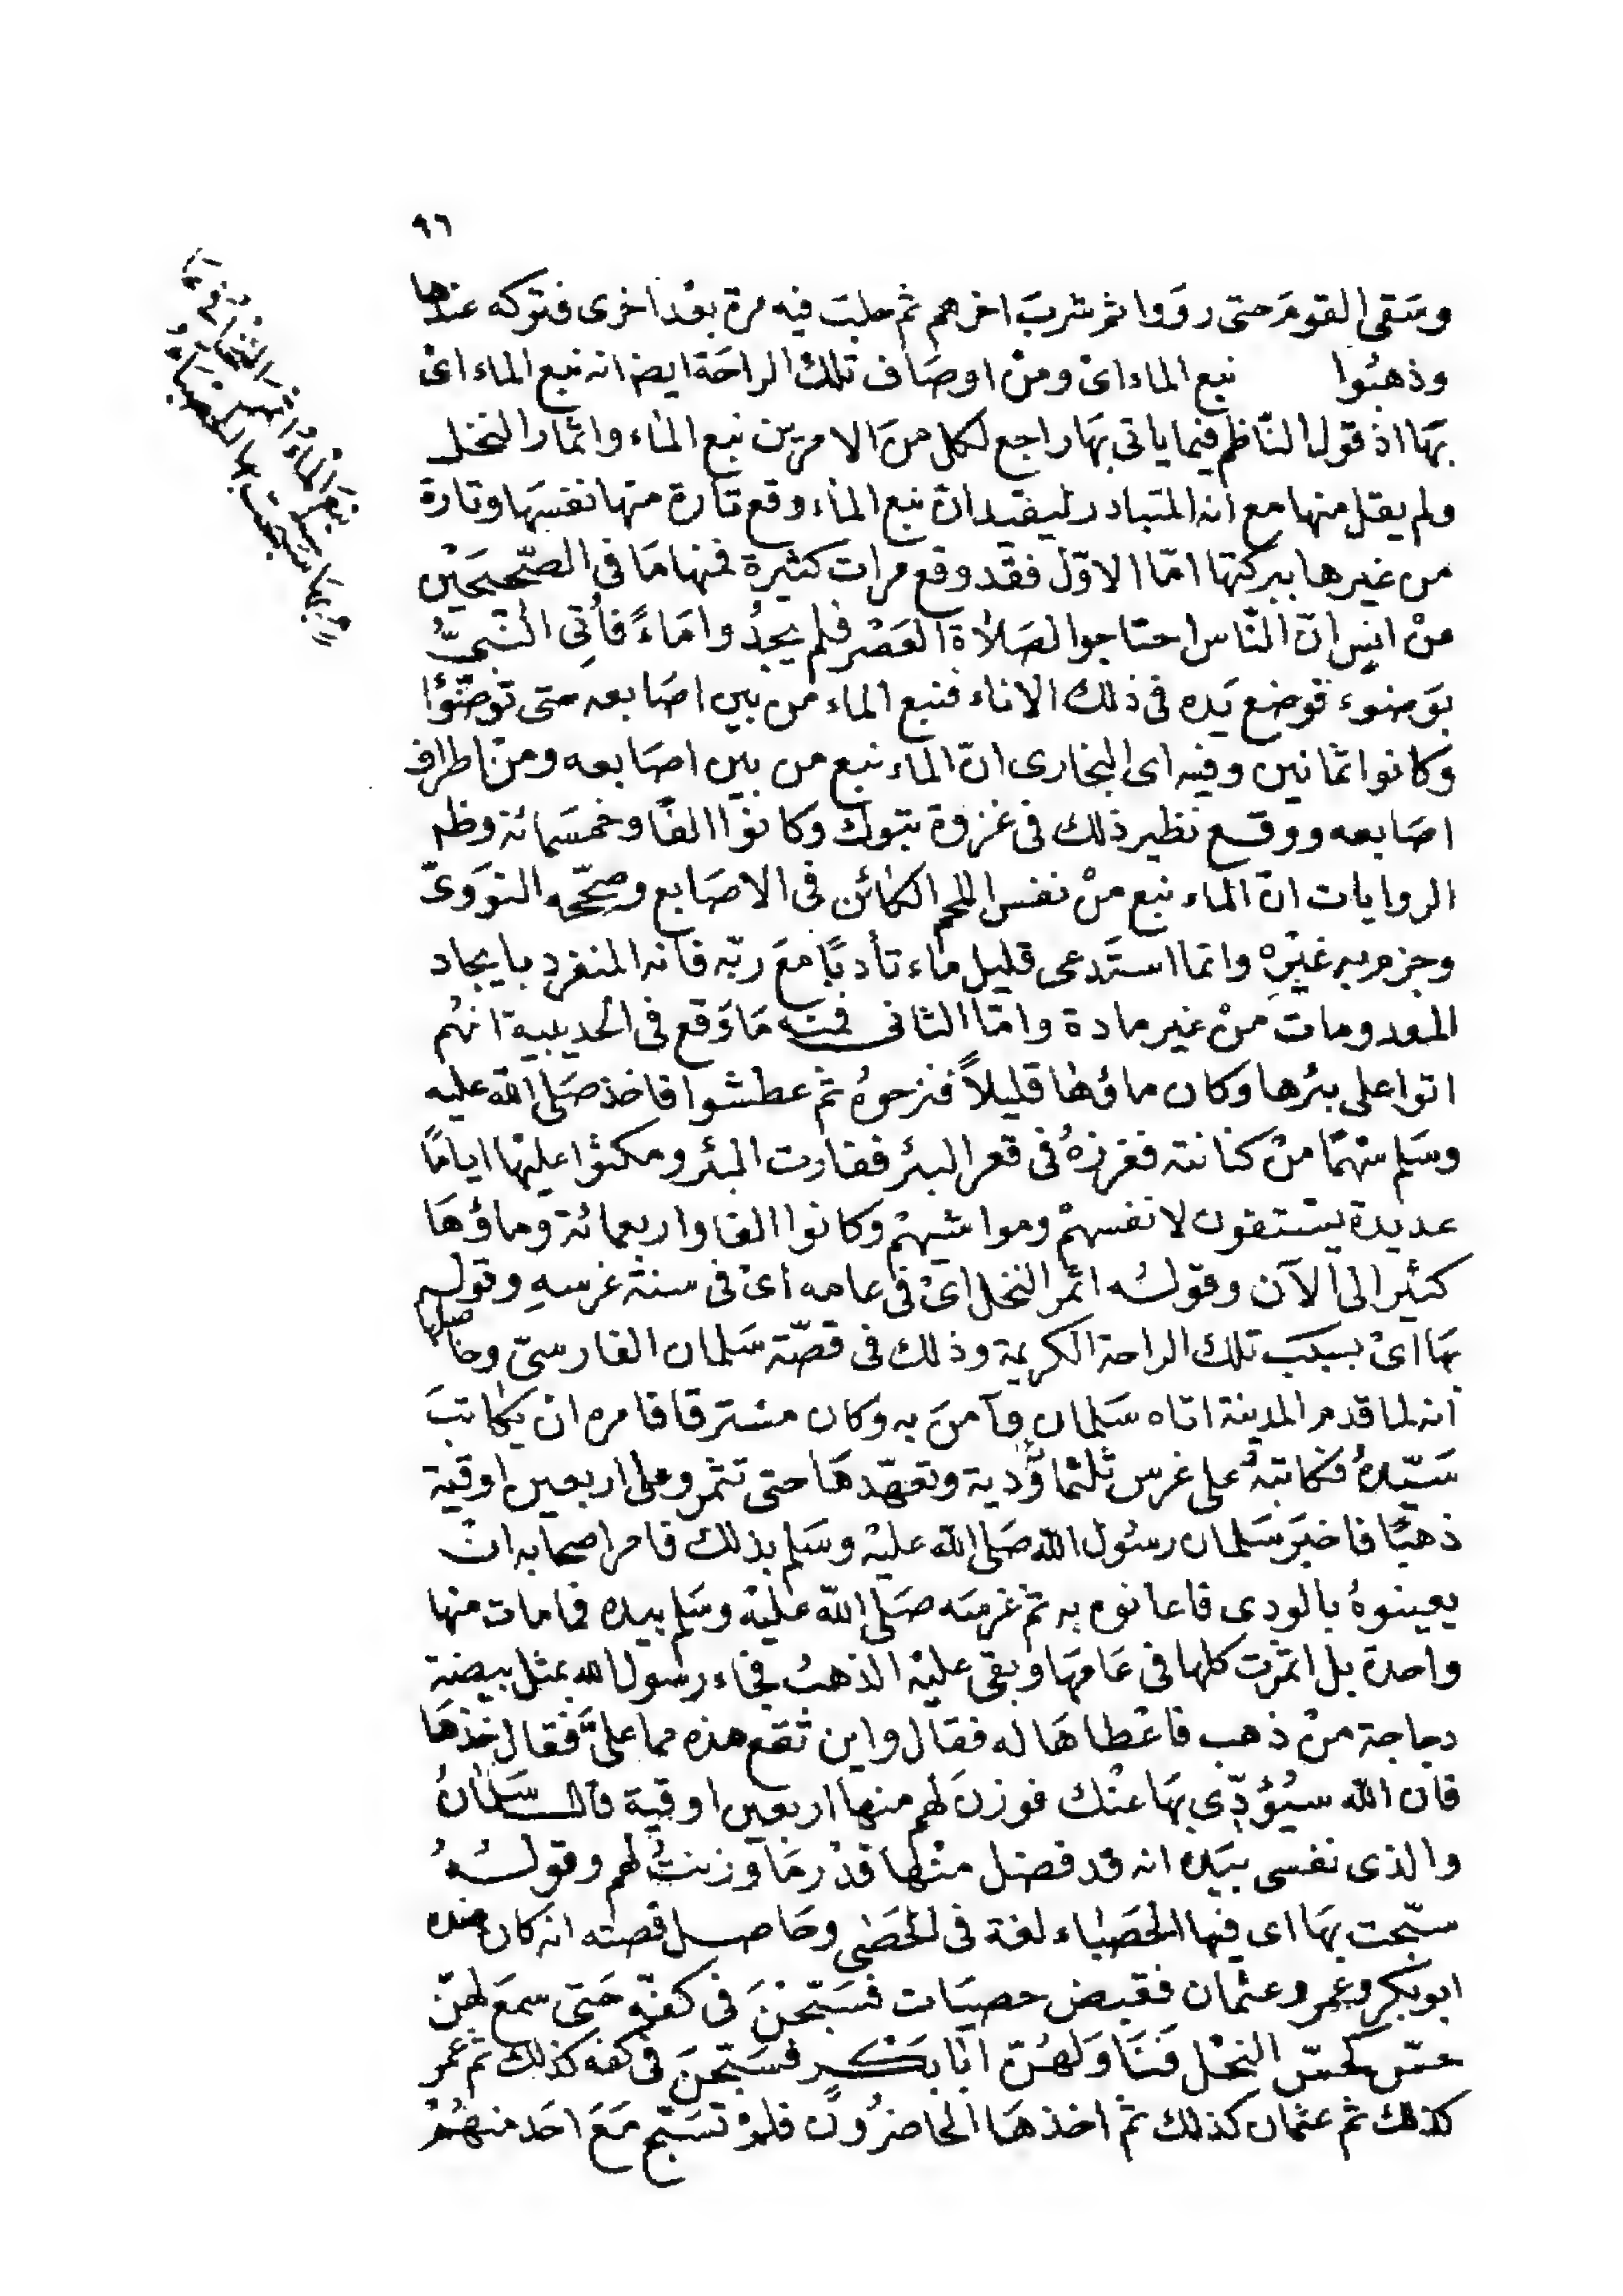 ٩٦
وسَقى القومَ حتى روَوا ثم شربَ اخرهم ثم حلبَ فيه مرة بعْد اخرى فتركه عندها
وذهبُوا نبع الماء ائ ومنْ اوصَاف تلك الراحَة ايضا انه نبع الماء ائ
بهَا اذ قول النّاظم فيما ياتى بهَا راجع لكل منَ الامرين نبع الماء واثمار النخل
ولم يقل منها مع انه المتبادر ليفيد ان نبع الماء وقع تارة منها نفسهَا وتارة
من غيرها ببركتها امّا الاوّل فقد وقع مرات كثيرة فمنها مَا فى الصّحيحَيْن
منْ انسٍ انّ النّاس احتاجوا لصَلاة العَصْر فلم يجدُوا مَاءً فأُتِى النّبىُّ
بوَضوء فوضع يَده فى ذلك الاناء فنبع الماء من بين اصَابعه حتى توضّؤا
وكانوا ثمانين وفيه اى البخارى انّ الماء نبع من بين اصَابعه ومنْ اطراف
اصَابعه ووقع نظير ذلك فى غزوة تبوك وكانوْا الفًا وخمسَمائة وظه
الروايات انّ الماء نبع منْ نفس اللحم الكائن فى الاصَابع وصحّحه النوَوىّ
وجزم به غيْرِه وانما استَدعى قليل ماء تأدبًا معَ ربّه فانه المنفرد بايجاد
المعدومات منْ غير مادة وامّا الثانى فمنه مَا وَقع فى الحديبية انهُم
اتوا على بئرها وكان ماؤها قليلاً فنزحوهُ ثم عطشوا فاخذ صَلى الله عليه
وسَلم سَهْمًا منْ كنانته فغرزهُ فى قعر البئر ففارت البئر ومكثوْا عليْها اياما
عديدة يستقون لانفسهمْ ومواشيهمْ وكانوا الفا واربعمائة وماؤهَا
كثيْر الى الآن وقولُه اثمر النخل ائْ فى عامه ائ فى سنة غرسهِ وقوله
بهَا ائْ بسبَب تلك الراحة الكريمة وذلك فى قصّة سَلمان الفارسىّ وحاصلها
انه لما قدم المدينة اتاه سَلمان وآمنَ به وكان مسترقا فامره ان يكاتبَ
سَيّدهُ فكاتبَهُ على غرس ثلثماوَدية وتعهّدهَا حتى تثمر وعلى اربعين اوقية
ذهبًا فاخبَر سَلمان رسُول الله صَلى الله عليْه وسَلم بذلك فامر اصحابه ان
يعينوهُ بالودى فاعانوه به ثم غرسَه صَلى الله عليْه وسَلم بيده فما مات منها
واحدة بل اثمرت كلها فى عَامهَا وبقى عليْه الذهبُ فجاء رسُول الله بمثل بيضة
دجاجة منْ ذهب فاعْطاهَا له فقال واين تقع هذه مما علىَّ فقال خذهَا
فان الله سيُؤدّى بهَا عنْك فوزنَ لهم منها اربعين اوقية قال سَلمانُ
والذى نفسى بيَده انه قد فضل منْها قدْر مَا وزنتُ لهم وقولُهُ
سبّحت بهَا اى فيها الحصَباء لغة فى الحَصٰى وحَاصل قصته انه كان عنده
ابوبَكر وعمر وعثمان فقبض حصيَات فسَبّحْنَ فى كفّه حَتى سمعَ لهنّ
حسّ كحسّ النحْل فَنَاوَلهُنّ ابَا بَكْر فسَبّحنَ فى كفه كذلك ثم عمر
كذلك ثم عثمان كذلك ثم اخذهَا الحاضرُون فلمْ تسَبّح مَعَ احَد منهُمْ
نبَع الماءُ اثمرَ النخلُ فى عَا
مٍ بهَا سَبَّحت بها الحصبَاءُ